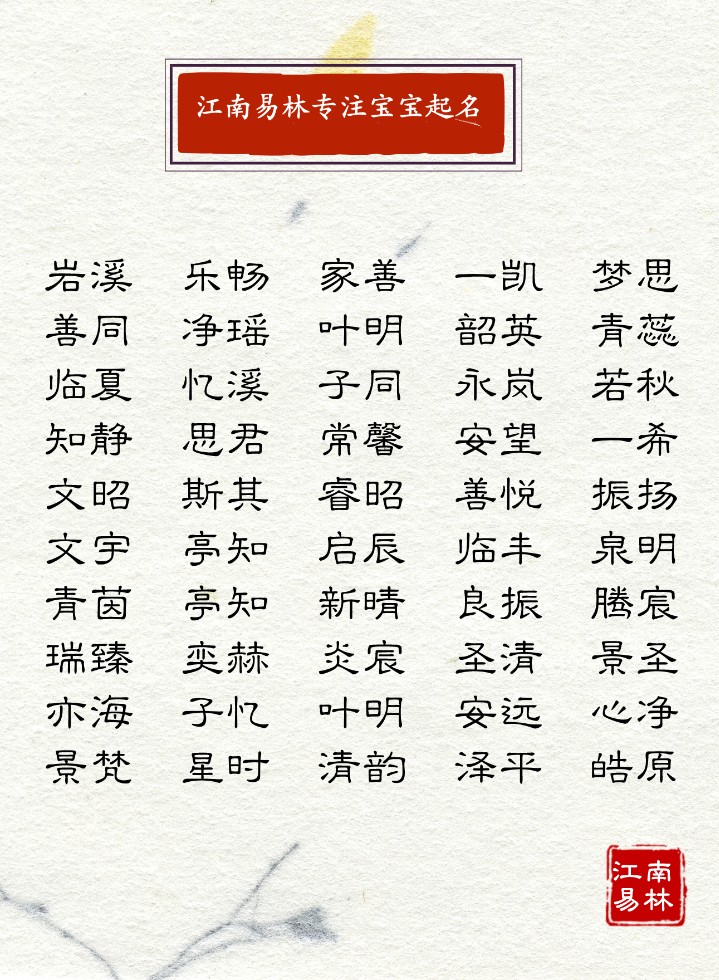 江南易林专注宝宝起名
岩溪 乐畅 家善 一凯 梦思
善同 净瑶 叶明 韶英 青蕊
临夏 忆溪 子同 永岚 若秋
知静 思君 常馨 安望 一希
文昭 斯其 睿昭 善悦 振扬
文宇 亭知 启辰 临丰 泉明
青茵 亭知 新晴 良振 腾宸
瑞臻 奕赫 炎宸 圣清 景圣
亦海 子忆 叶明 安远 心净
景梵 星时 清韵 泽平 皓原
江南
易林